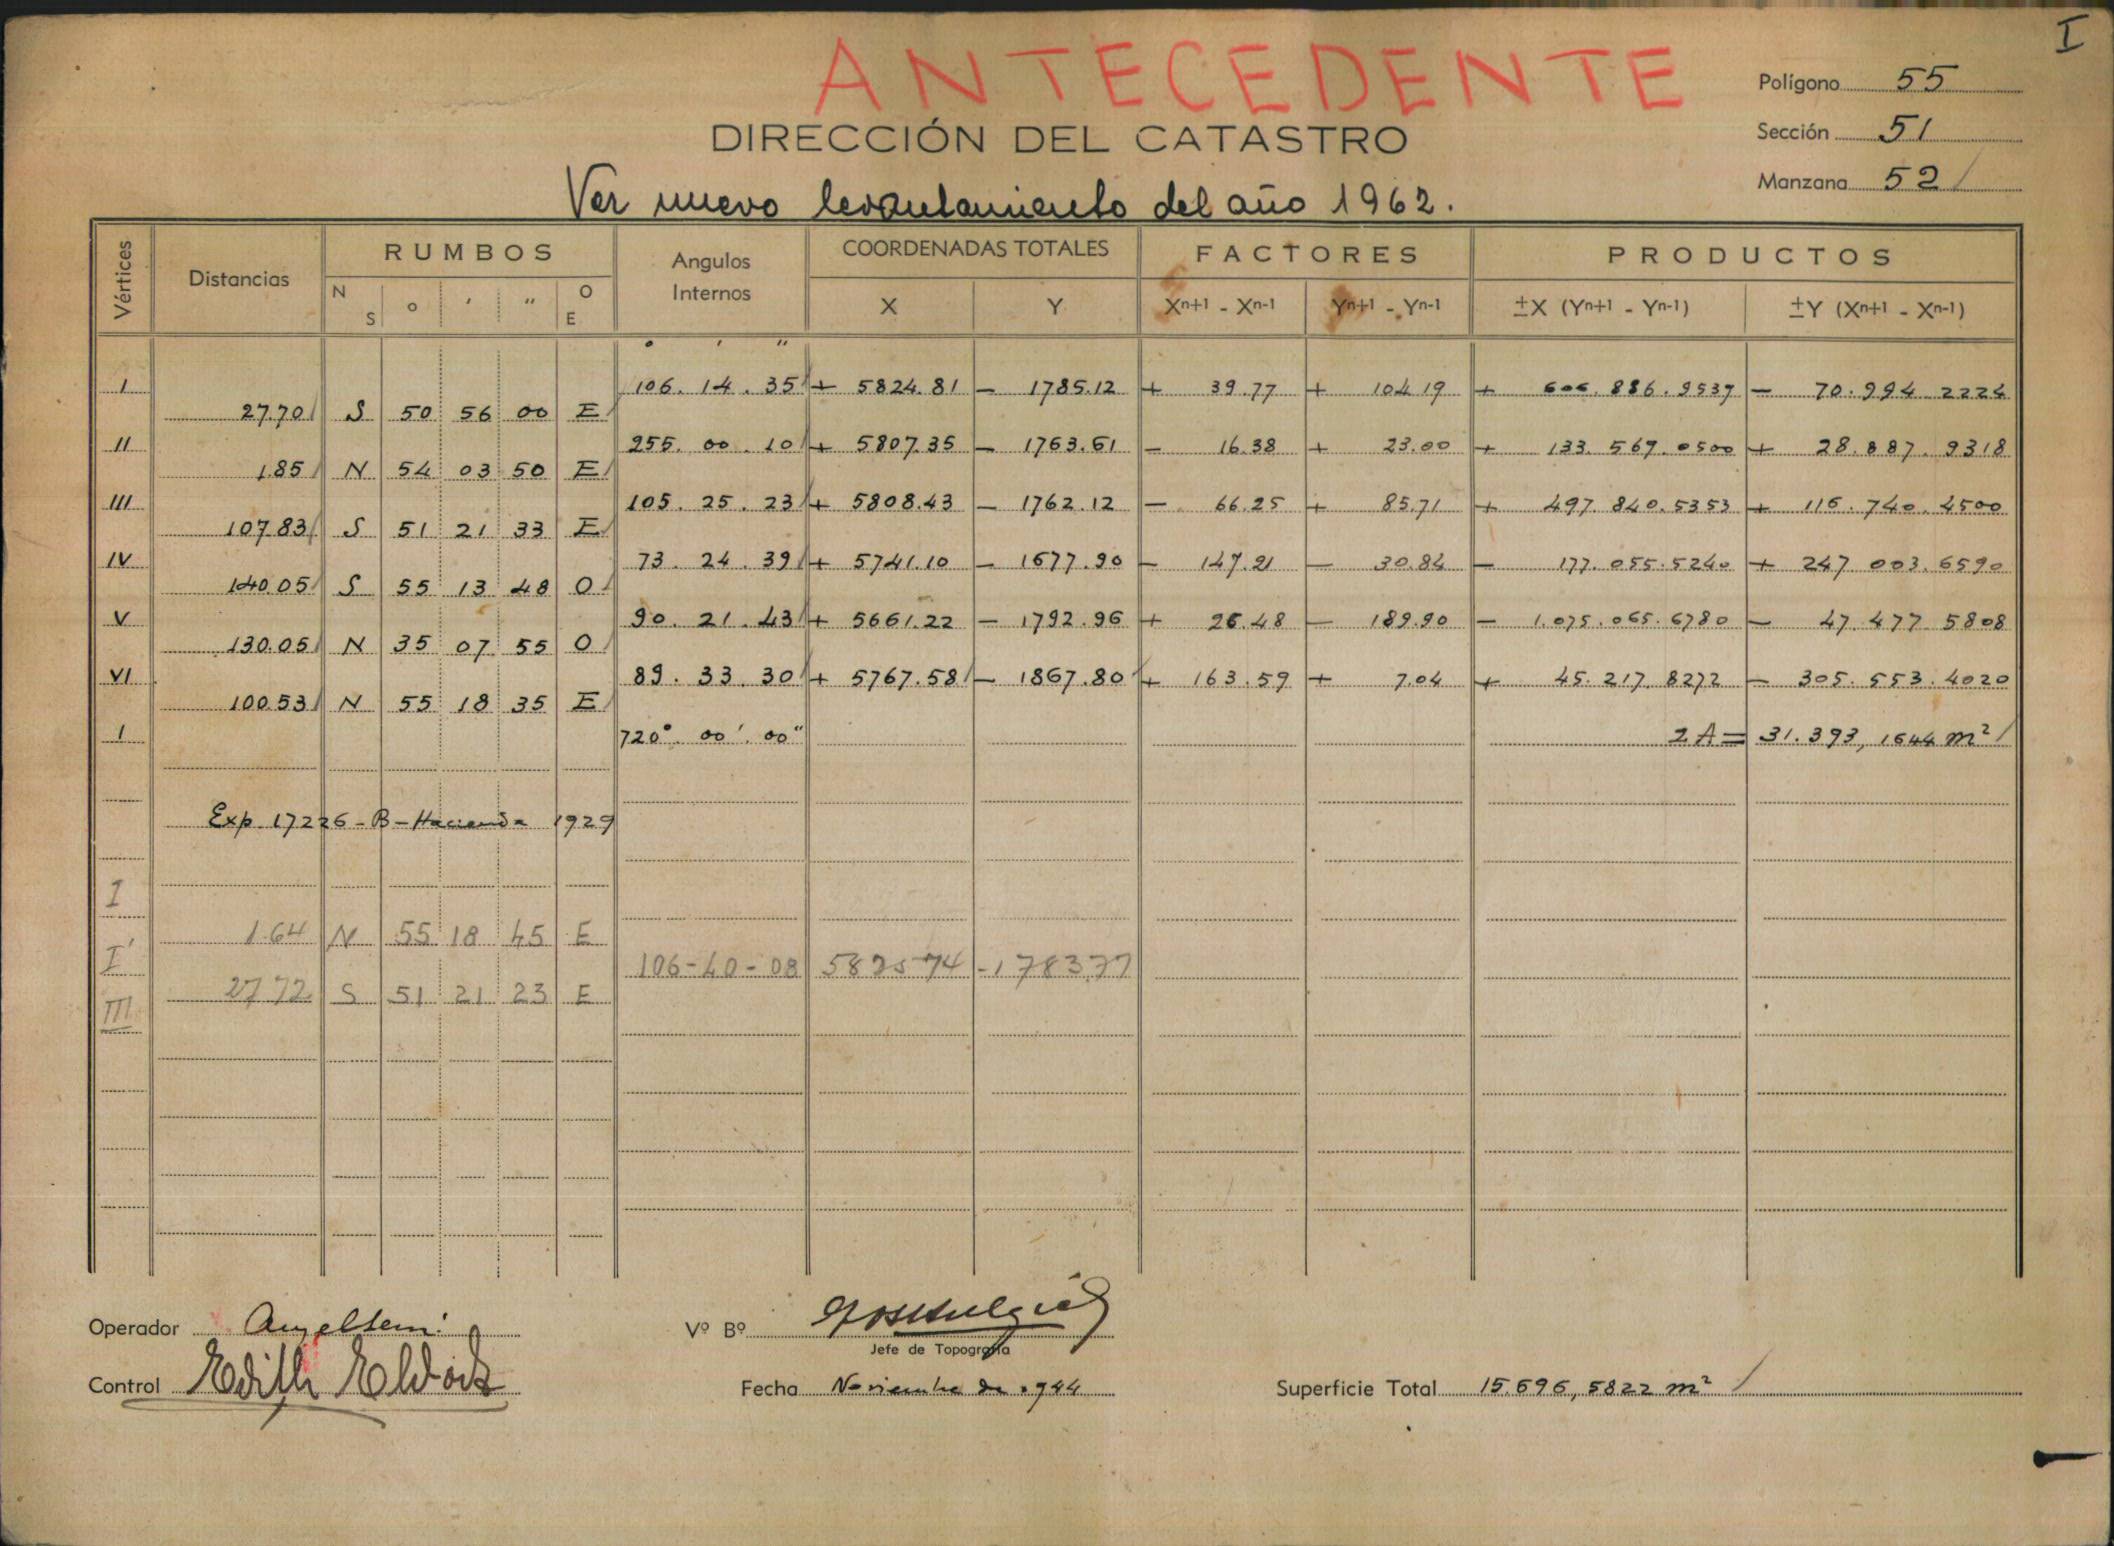 I
ANTECEDENTE
DIRECCIÓN DEL CATASTRO
Polígono 55
Sección 51
Manzana 52
Ver nuevo levantamiento del año 1962.
Vértices Distancias RUMBOS Angulos Internos COORDENADAS TOTALES FACTORES PRODUCTOS
N S o ' " O E X Y Xn+1 - Xn-1 Yn+1 - Yn-1 ±X (Yn+1 - Yn-1) ±Y (Xn+1 - Xn-1)
° ' "
I 106. 14. 35 + 5824.81 - 1785.12 + 39.77 + 104.19 + 606.886.9539 - 70.994.2224
27.70 S 50 56 00 E
II 255. 00. 10 + 5807.35 - 1763.61 - 16.38 + 23.00 + 133.569.0500 + 28.887.9318
1.85 N 54 03 50 E
III 105. 25. 23 + 5808.43 - 1762.12 - 66.25 + 85.71 + 497.840.5353 + 116.740.4500
107.83 S 51 21 33 E
IV 73. 24. 39 + 5741.10 - 1677.90 - 147.21 - 30.84 - 177.055.5240 + 247.003.6590
140.05 S 55 13 48 O
V 90. 21. 43 + 5661.22 - 1792.96 + 26.48 - 189.90 - 1.075.065.6780 - 47.477.5808
130.05 N 35 07 55 O
VI 89. 33. 30 + 5767.58 - 1867.80 + 163.59 + 7.84 + 45.217.8272 - 305.553.4020
100.53 N 55 18 35 E
I 720°. 00'. 00" 2A = 31.393,1644 m²
Exp. 17226 - B - Hacienda 1929
I
1.64 N 55 18 45 E
I' 106-40-08 5825.74 -1783.77
27.72 S 51 21 23 E
III
Operador
Vº Bº
Jefe de Topografía
Control Edith
Fecha Noviembre de 1944
Superficie Total 15.696,5822 m²